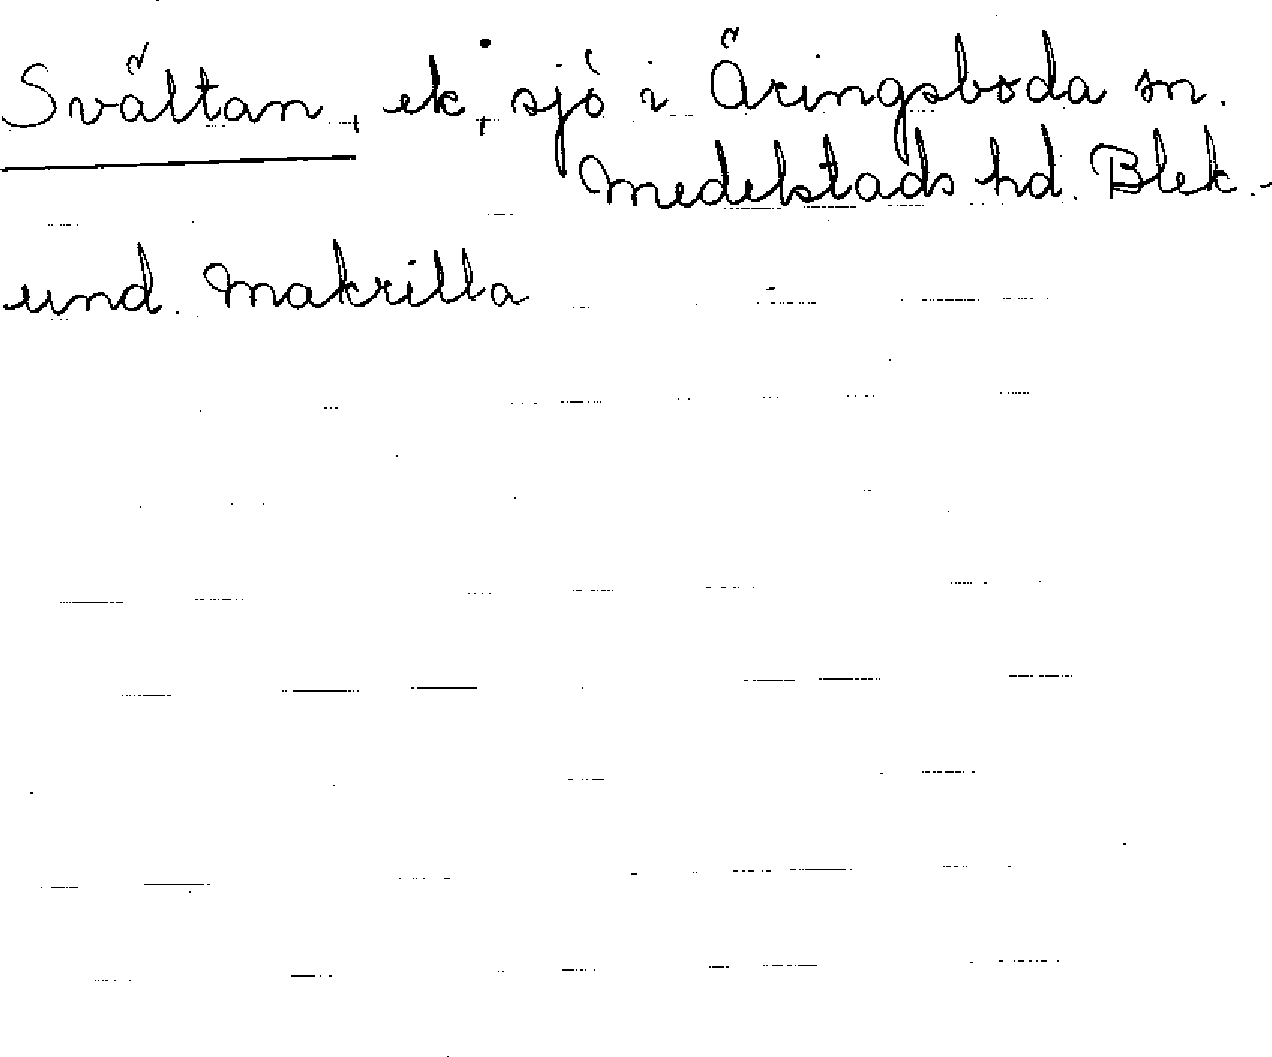 Svältan, ek, sjö i Äringsboda sn.
Medelstads hd. Blek.-
und. Makrilla